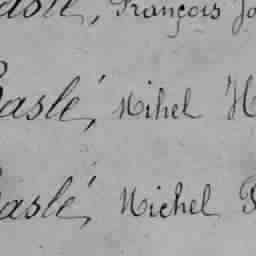 Baslé, François Jo
Baslé, Mihel H
Baslé, Michel